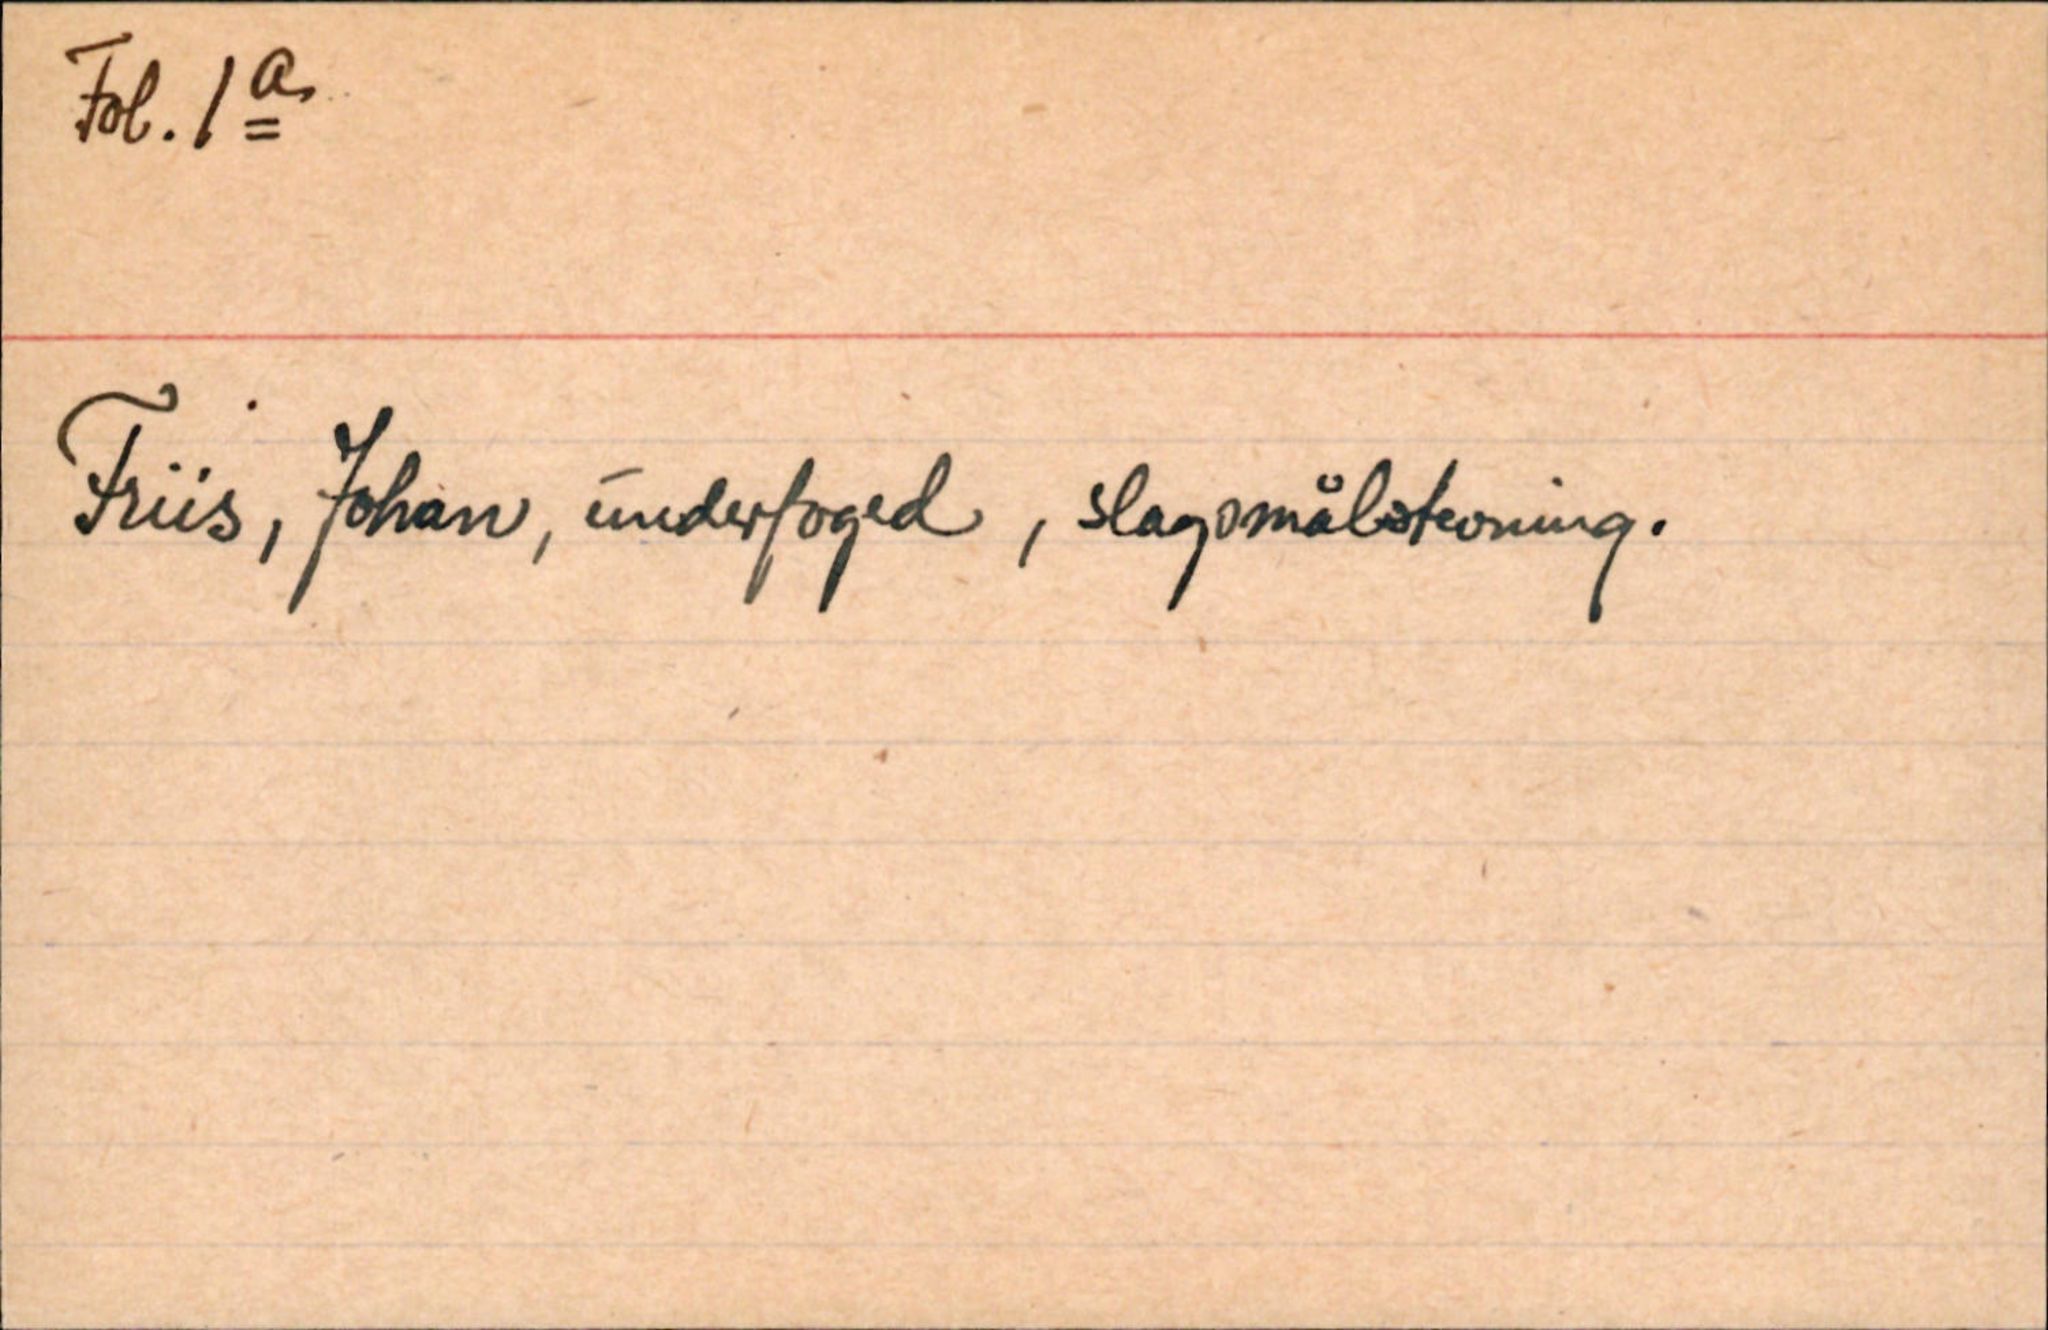 Fol. 1a.
Friis, Johan, underfoged, slagsmålstevning.